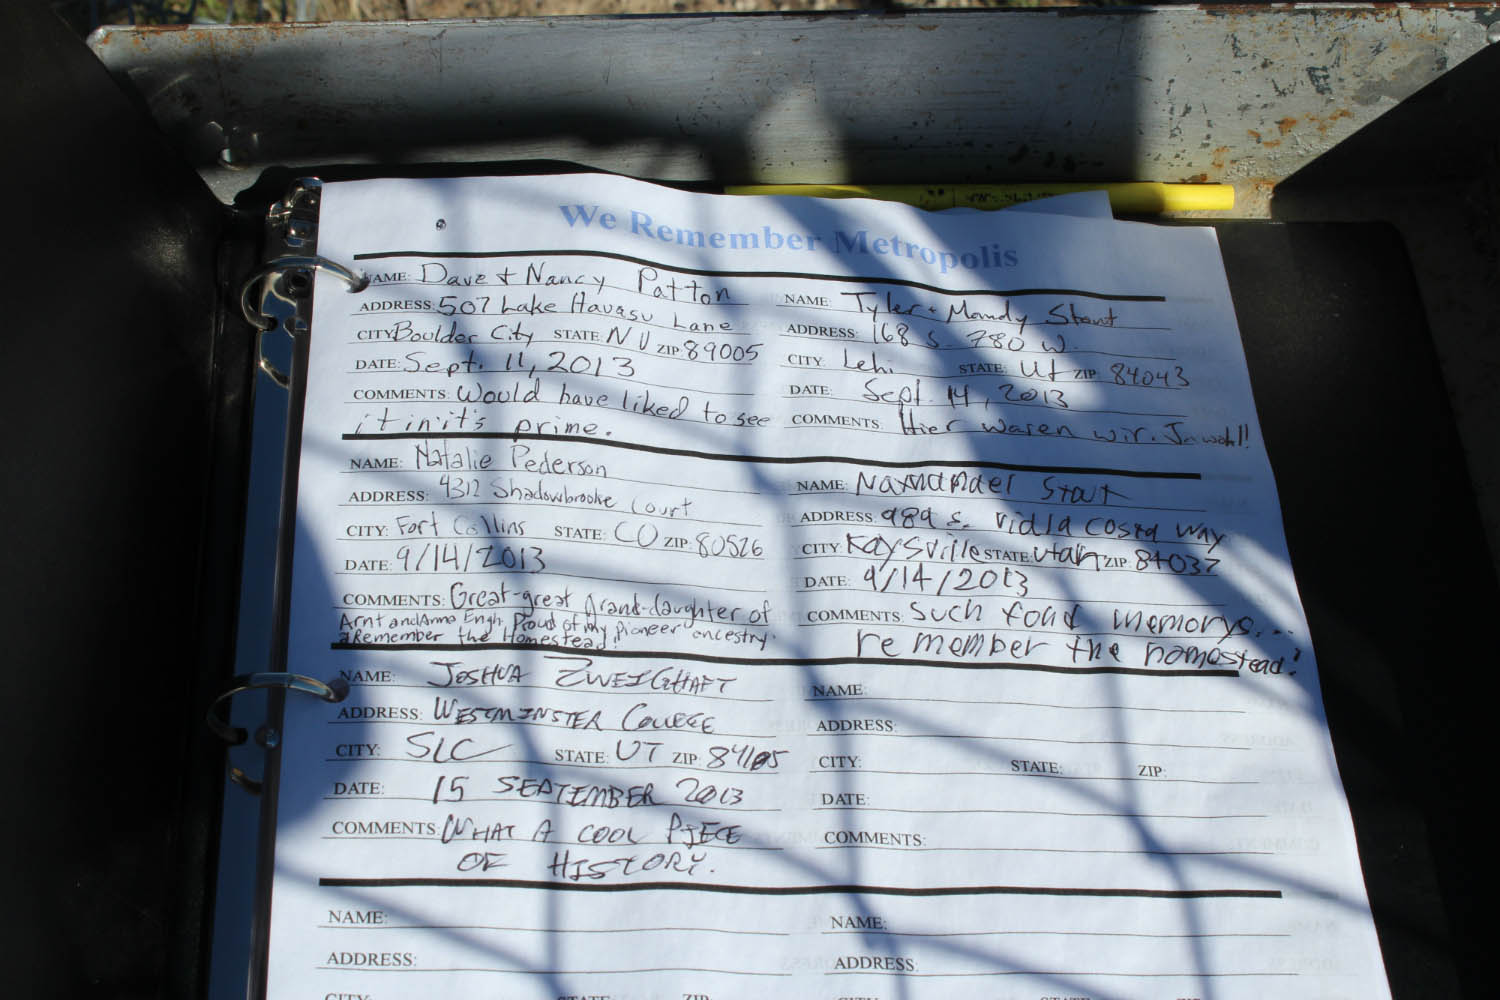 We Remember Metropolis
NAME: Dave + Nancy Patton
ADDRESS: 507 Lake Havasu Lane
CITY: Boulder City STATE: NV ZIP: 89005
DATE: Sept. 11, 2013
COMMENTS: Would have liked to see
it in it's prime.
NAME: Tyler + Mandy Stout
ADDRESS: 168 S. 780 W.
CITY: Lehi STATE: Ut ZIP: 84043
DATE: Sept. 14, 2013
COMMENTS: Hier waren wir. Jawohl!
NAME: Natalie Pederson
ADDRESS: 4312 Shadowbrooke Court
CITY: Fort Collins STATE: CO ZIP: 80526
DATE: 9/14/2013
COMMENTS: Great-great grand-daughter of
Arnt and Anna Engh. Proud of my pioneer ancestry.
Remember the Homestead!
NAME: Stout
ADDRESS: 989 s. costa way
CITY: Kaysville STATE: Utah ZIP: 84037
DATE: 9/14/2013
COMMENTS: such fond memorys...
remember the homestead!
NAME: JOSHUA ZWEIGHAFT
ADDRESS: WESTMINSTER COLLEGE
CITY: SLC STATE: UT ZIP: 84105
DATE: 15 SEPTEMBER 2013
COMMENTS: WHAT A COOL PIECE
OF HISTORY.
NAME:
ADDRESS:
CITY: STATE: ZIP:
DATE:
COMMENTS:
NAME:
ADDRESS:
CITY: STATE: ZIP:
NAME:
ADDRESS:
CITY: STATE: ZIP: